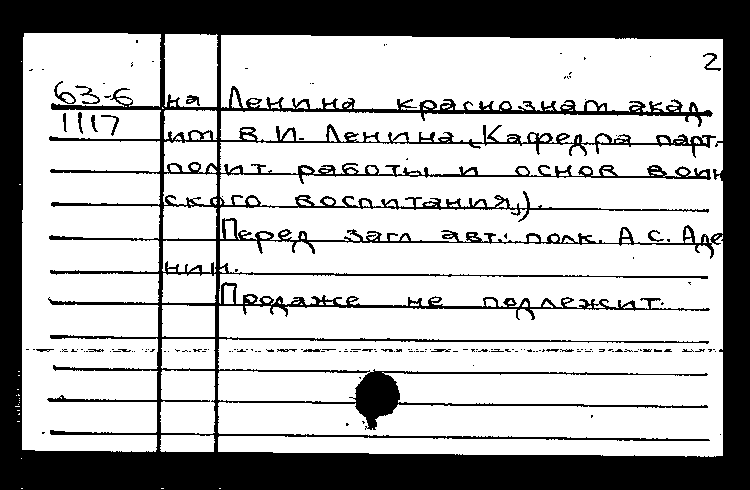 2
63-6 на Ленина краснознам. акад.
1117 им. В.И. Ленина. (Кафедра парт.-
полит. работы и основ воин
ского воспитания).
Перед загл. авт.: полк. А.С. Аде
нин.
Продаже не подлежит.